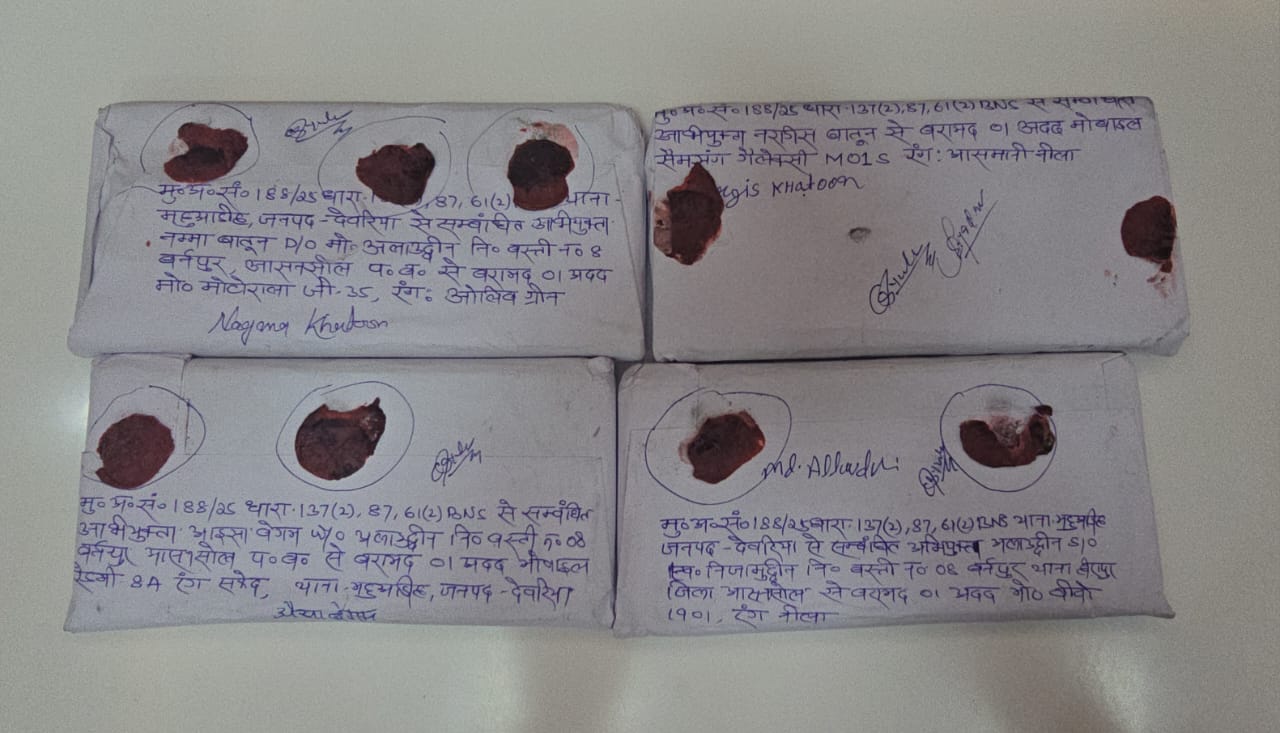 मु०अ०सं० 188/25 धारा 87, 61(2) थाना-
जनपद-देवरिया से सम्बंधित अभियुक्ता
खातून D/O मो० अलाउद्दीन नि० बस्ती न० 8
बर्नपुर, आसनसोल प०बं० से बरामद 01 अदद
मो० मोटोरोला जी-35, रंग: ओलिव ग्रीन
Nagama Khatoon
मु०अ०सं० 188/25 धारा-137(2), 87, 61(2) BNS से सम्बंधित
अभियुक्ता नरगिस खातून से बरामद 01 अदद मोबाइल
सैमसंग गैलेक्सी M01S रंग: आसमानी नीला
Khatoon
मु०अ०सं० 188/25 धारा-137(2), 87, 61(2) BNS से सम्बंधित
अभियुक्ता आइसा बेगम W/O अलाउद्दीन नि० बस्ती न० 08
बर्नपुर आसनसोल प०बं० से बरामद 01 अदद मोबाइल
रेडमी 8A रंग सफेद, थाना जनपद-देवरिया
Md. 
मु०अ०सं० 188/25 धारा-137(2), 87, 61(2) BNS थाना
जनपद-देवरिया से सम्बंधित अभियुक्त अलाउद्दीन S/O
स्व० निजामुद्दीन नि० बस्ती न० 08 बर्नपुर थाना हीरापुर
जिला आसनसोल से बरामद 01 अदद मो० वीवो
1901, रंग नीला